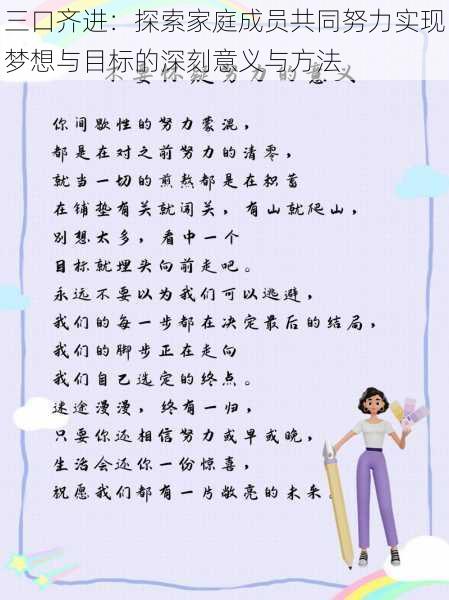 三口齐进：探索家庭成员共同努力实现
梦想与目标的深刻意义与方法
不要怀疑努力的意义
你间歇性的努力蒙混，
都是在对之前努力的清零，
就当一切的煎熬都是在积蓄
在铺垫有关就闯关，有山就爬山，
别想太多，看中一个
目标就埋头向前走吧。
永远不要以为我们可以逃避，
我们的每一步都在决定最后的结局，
我们的脚步正在走向
我们自己选定的终点。
迷途漫漫，终有一归，
只要你还相信努力或早或晚，
生活会还你一份惊喜，
祝愿我们都有一片敞亮的未来。